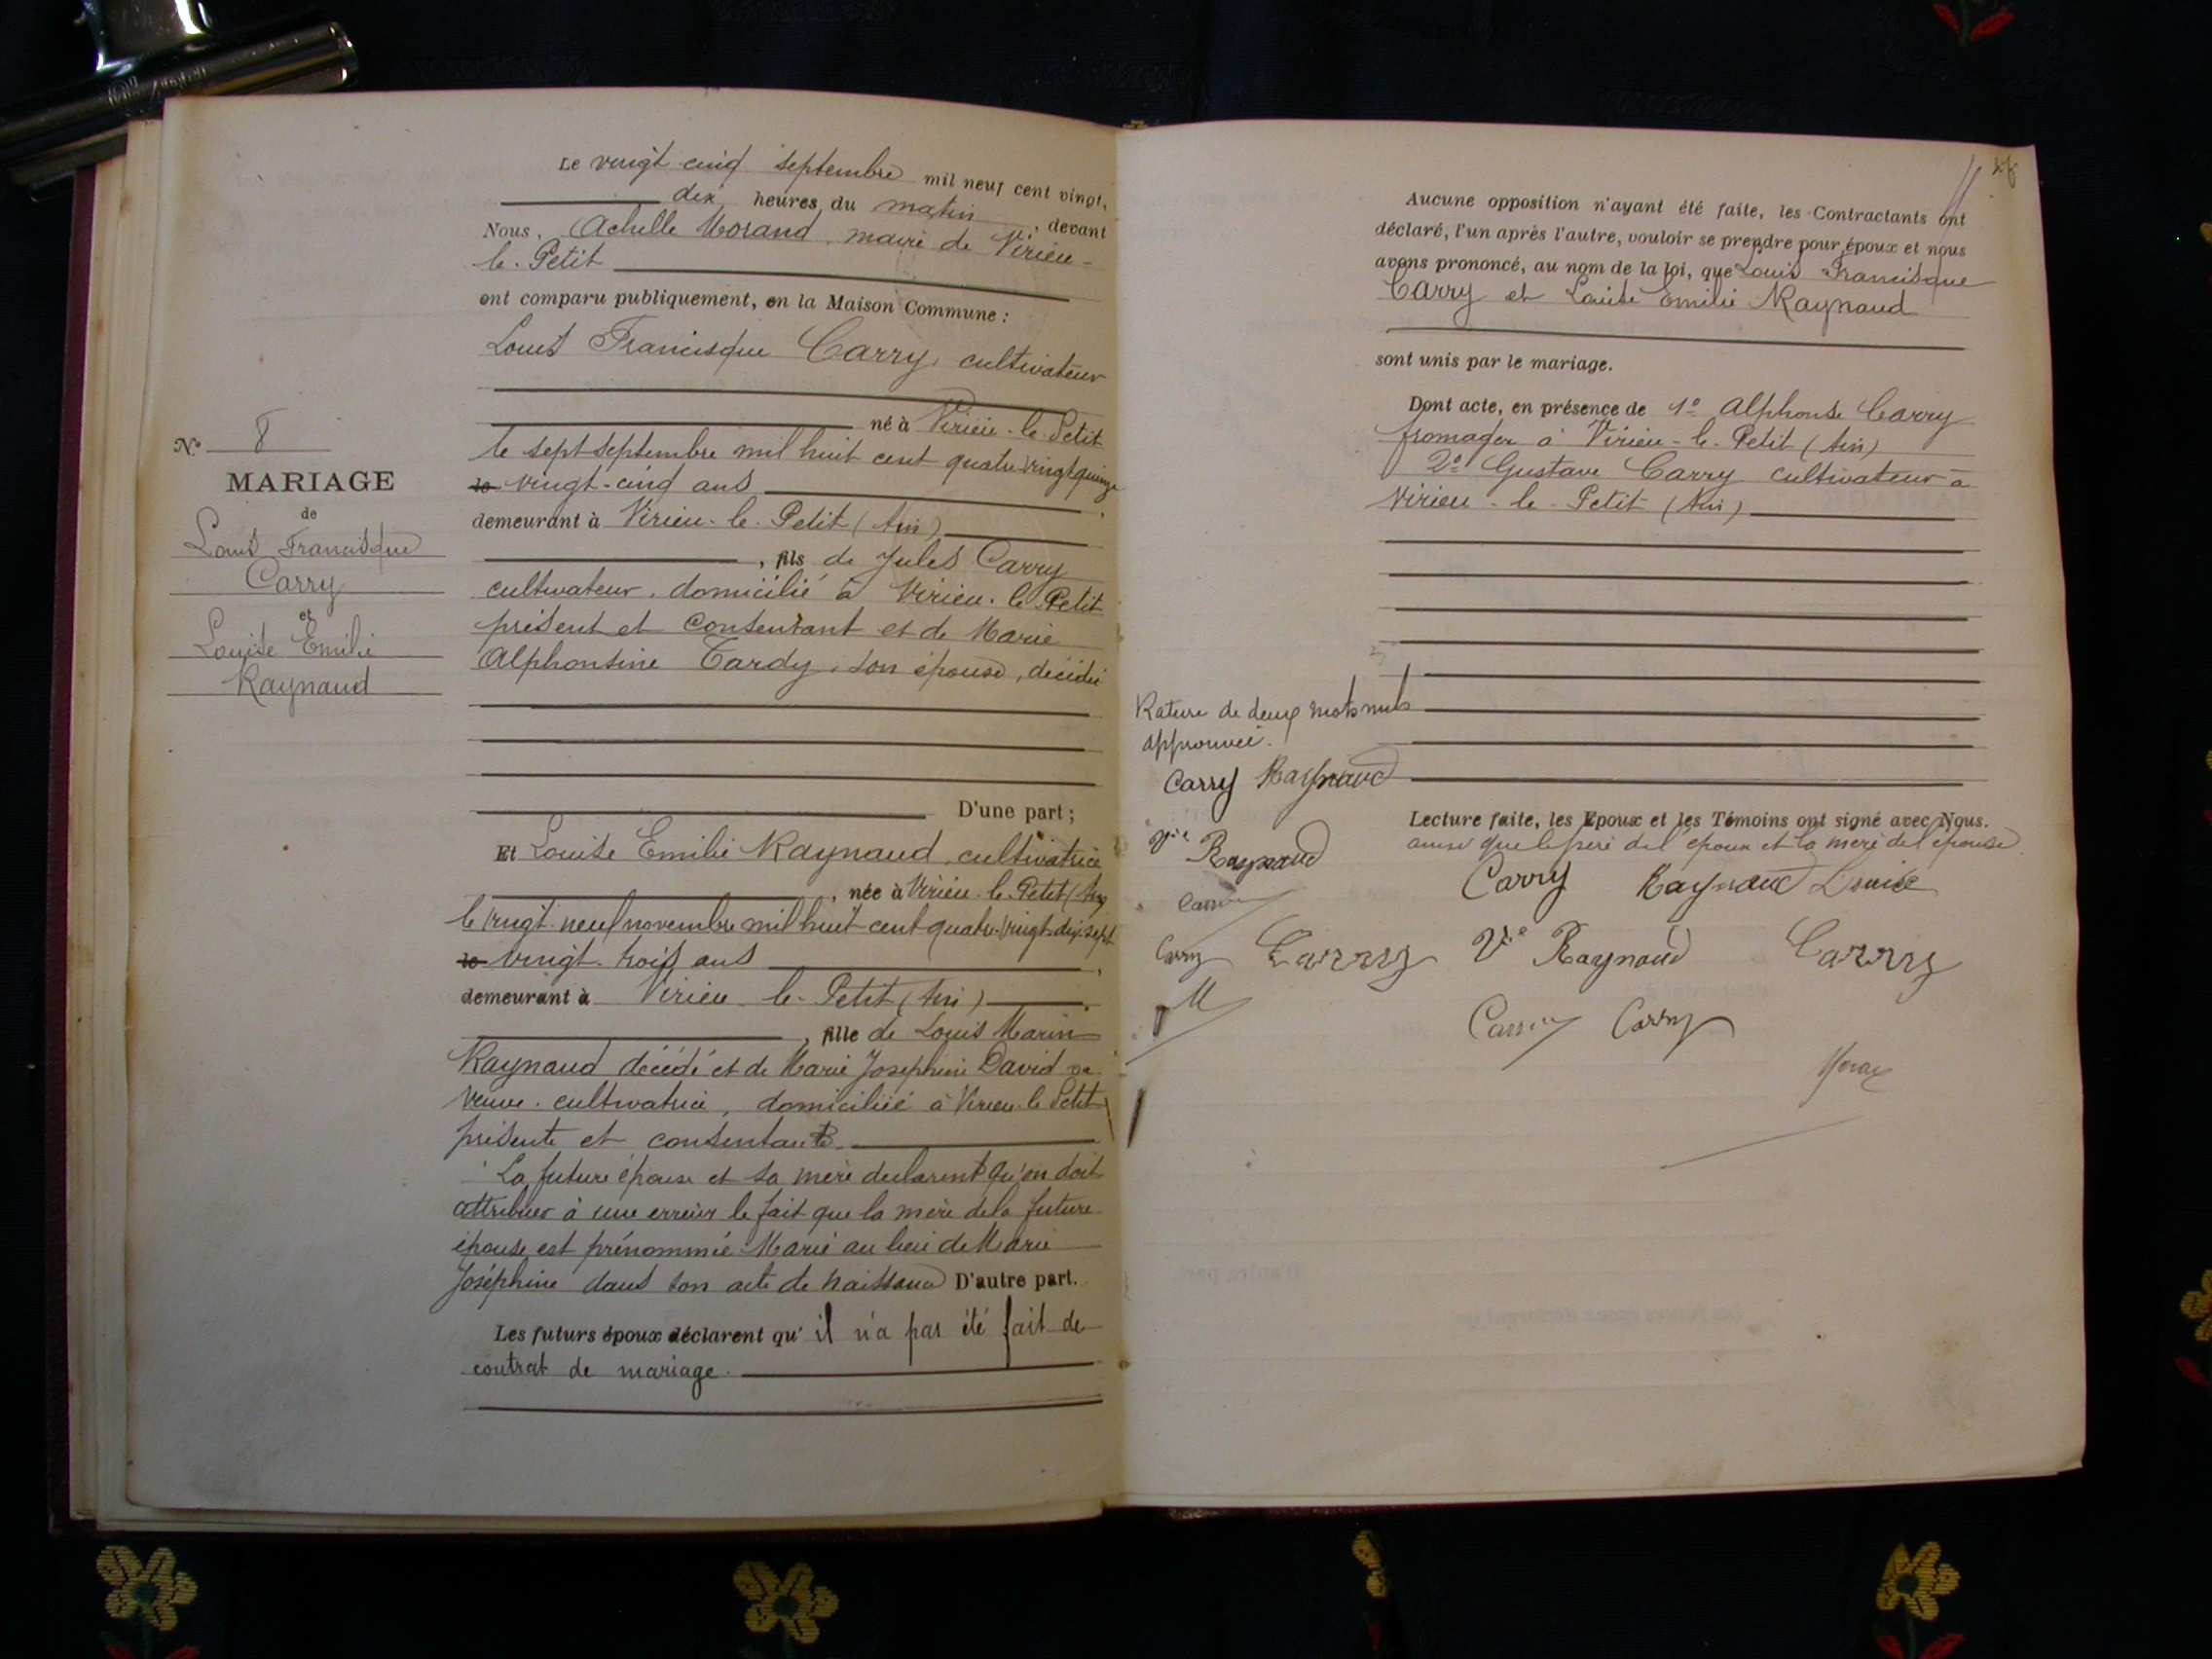 N° 8
MARIAGE
de
Louis Francisque
Carry
et
Louise Emilie
Raynaud
Le vingt-cinq septembre mil neuf cent vingt,
dix heures du matin, devant
Nous, Achille Morand, maire de Virieu-
le-Petit
ont comparu publiquement, en la Maison Commune :
Louis Francisque Carry, cultivateur
né à Virieu-le-Petit
le sept septembre mil huit cent quatre vingt quinze
vingt-cinq ans
demeurant à Virieu-le-Petit (Ain)
, fils de Jules Carry
cultivateur, domicilié à Virieu-le-Petit
présent et consentant et de Marie
Alphonsine Tardy, son épouse, décédée
D'une part ;
Et Louise Emilie Raynaud, cultivatrice
, née à Virieu-le-Petit (Ain)
le vingt-neuf novembre mil huit cent quatre-vingt-dix-sept
vingt-trois ans
demeurant à Virieu-le-Petit (Ain)
, fille de Louis Marin
Raynaud décédé et de Marie Joséphine David sa
veuve, cultivatrice, domiciliée à Virieu-le-Petit
présente et consentante
La future épouse et sa mère déclarent qu'on doit
attribuer à une erreur le fait que la mère de la future
épouse est prénommée Marie au lieu de Marie
Joséphine dans son acte de naissance D'autre part.
Les futurs époux déclarent qu'il n'a pas été fait de
contrat de mariage.
Aucune opposition n'ayant été faite, les Contractants ont
déclaré, l'un après l'autre, vouloir se prendre pour époux et nous
avons prononcé, au nom de la loi, que Louis Francisque
Carry et Louise Emilie Raynaud
sont unis par le mariage.
Dont acte, en présence de 1° Alphonse Carry
fromager à Virieu-le-Petit (Ain)
2° Gustave Carry cultivateur à
Virieu-le-Petit (Ain)
Rature de deux mots nuls
approuvée.
Carry Raynaud
Vve Raynaud
Carry
Lecture faite, les Epoux et les Témoins ont signé avec Nous.
ainsi que le père de l'époux et la mère de l'épouse
Carry Raynaud Louise
Carry Vve Raynaud Carry
Carry